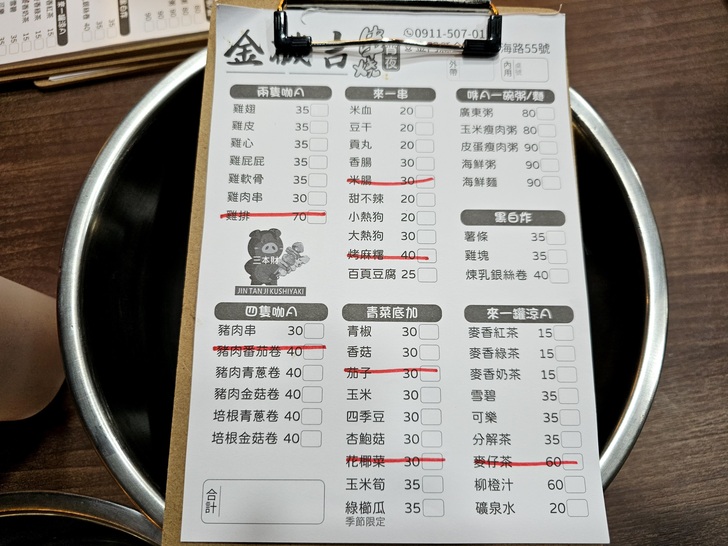 金
吉
串燒
宵夜
0911-507-01
海路55號
外帶
內用
兩隻咖ㄟ
雞翅 35
雞皮 35
雞心 35
雞屁屁 35
雞軟骨 35
雞肉串 30
雞排 70
三本財
JIN TAN JI KUSHIYAKI
來一串
米血 20
豆干 20
貢丸 20
香腸 30
米腸 30
甜不辣 20
小熱狗 20
大熱狗 30
烤麻糬 40
百頁豆腐 25
啉ㄟ一碗粥/麵
廣東粥 80
玉米瘦肉粥 80
皮蛋瘦肉粥 90
海鮮粥 90
海鮮麵 90
黑白炸
薯條 35
雞塊 35
煉乳銀絲卷 40
四隻咖ㄟ
豬肉串 30
豬肉番茄卷 40
豬肉青蔥卷 40
豬肉金菇卷 40
培根青蔥卷 40
培根金菇卷 40
合計
青菜底加
青椒 30
香菇 30
茄子 30
玉米 30
四季豆 30
杏鮑菇 30
花椰菜 30
玉米筍 35
綠櫛瓜 35
季節限定
來一罐涼ㄟ
麥香紅茶 15
麥香綠茶 15
麥香奶茶 15
雪碧 35
可樂 35
分解茶 35
麥仔茶 60
柳橙汁 60
礦泉水 20